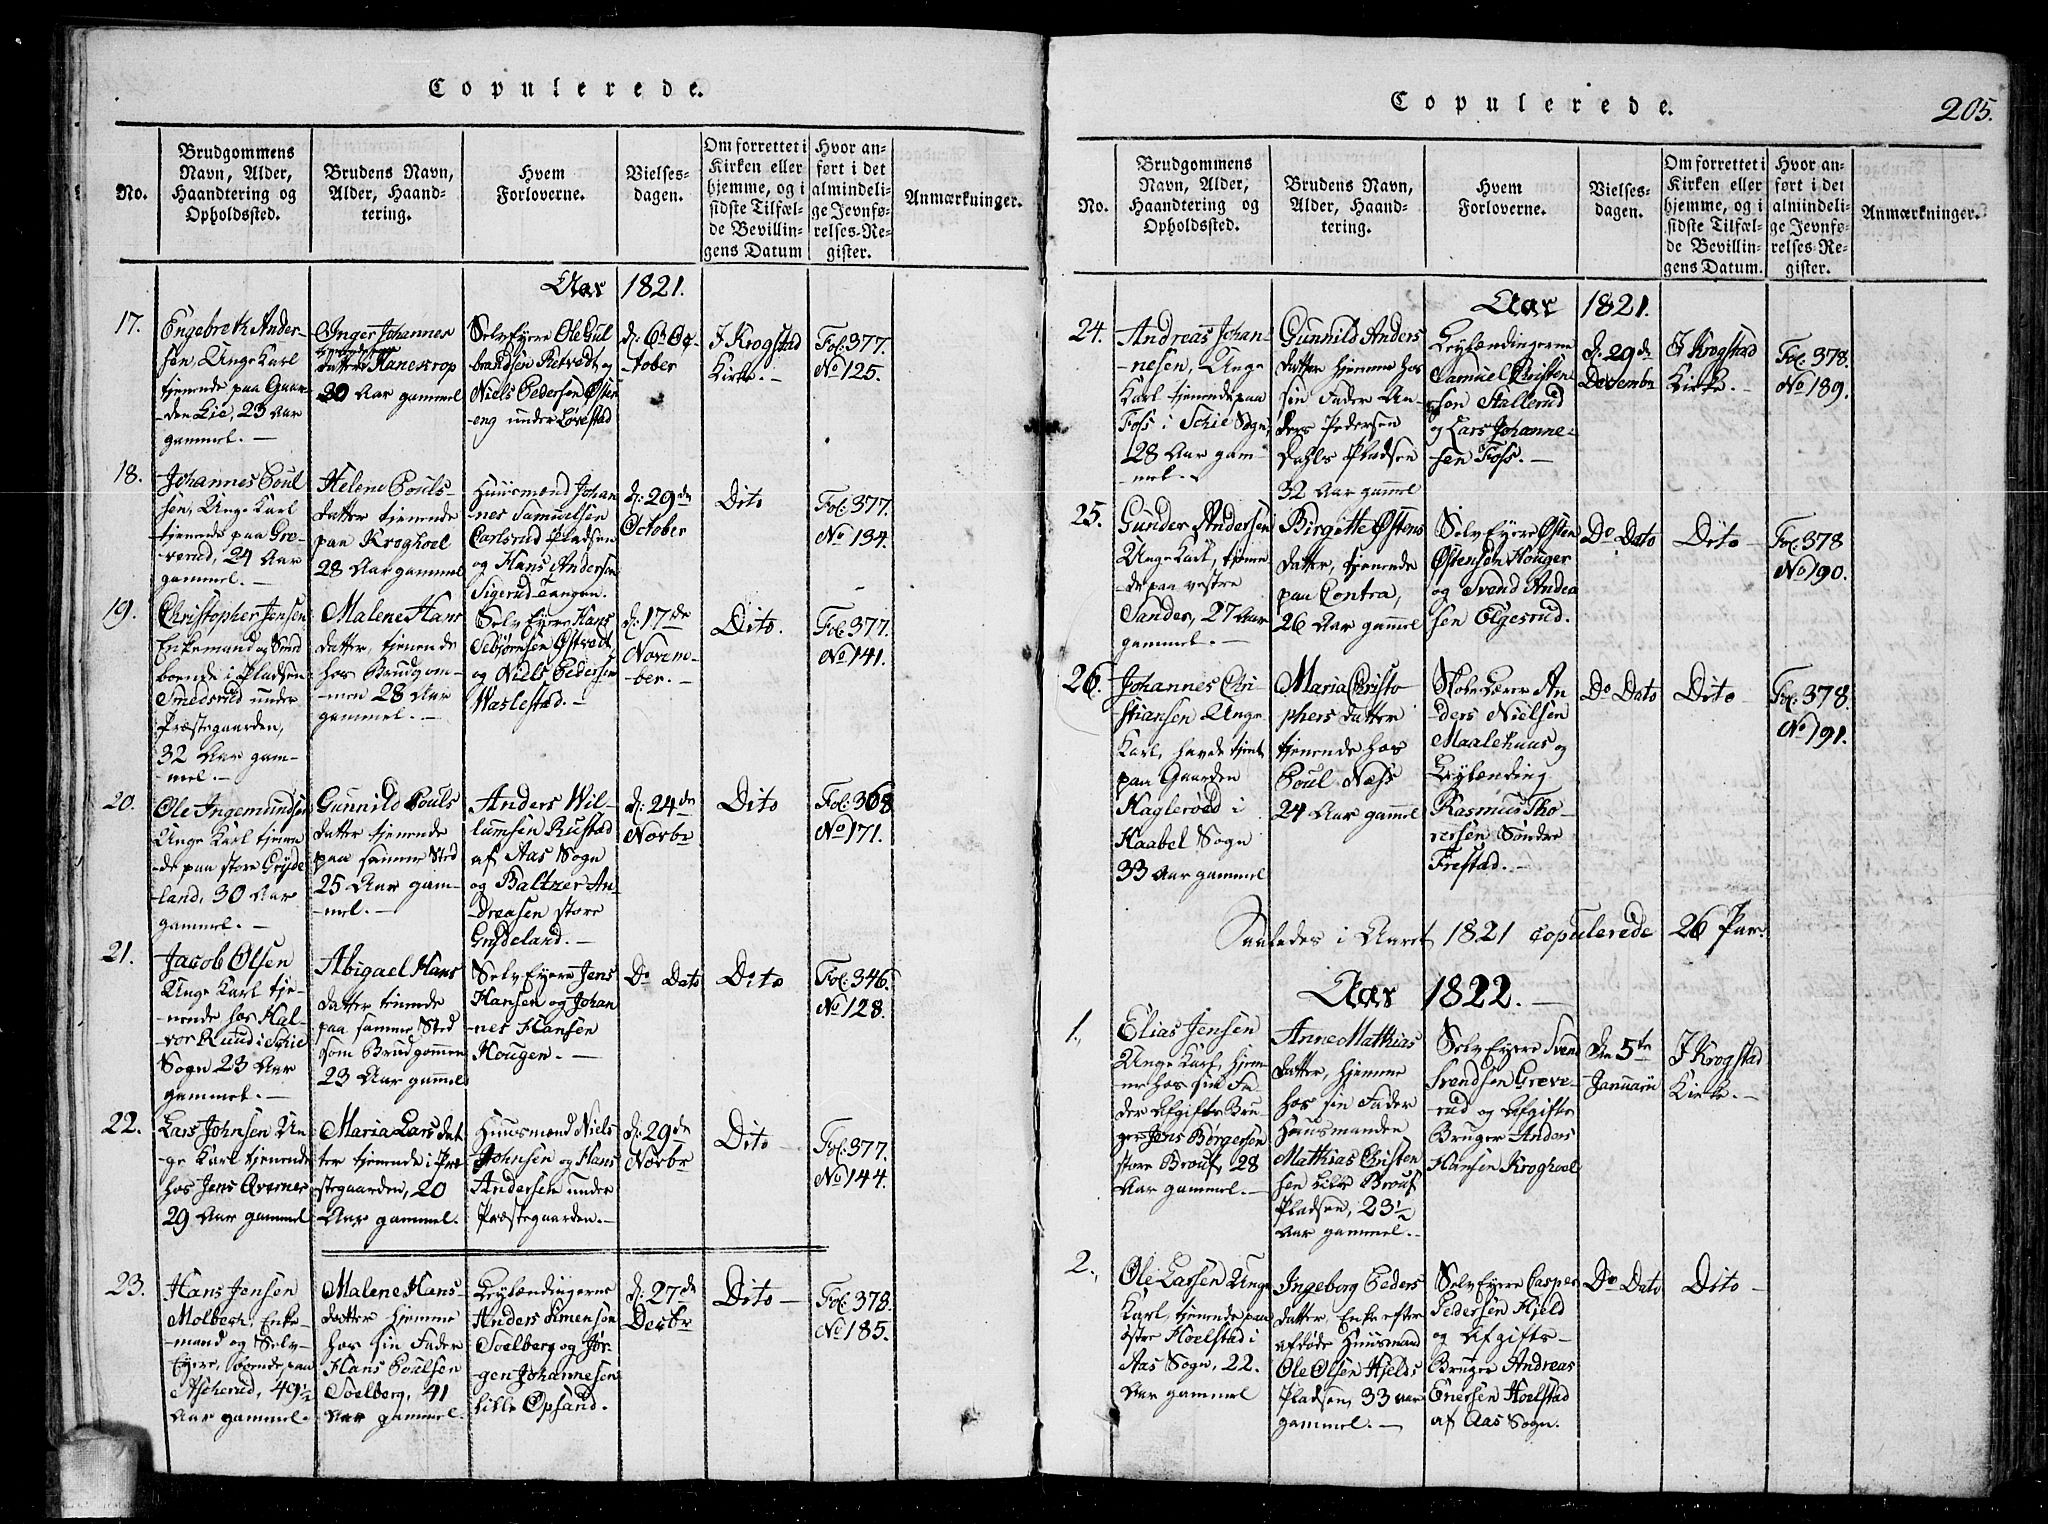 Copulerede.
No.
Brudgommens
Navn, Alder,
Haandtering og
Opholdssted.
Brudens Navn,
Alder, Haand-
tering.
Hvem
Forloverne.
Vielses-
dagen.
Om forrettet i
Kirken eller
hjemme, og i
sidste Tilfæl-
de Bevillin-
gens Datum
Hvor an-
ført i det
almindeli-
ge Jevnfø-
relses-Re-
gister.
Anmærkninger.
Aar 1821.
17.
Engebreth Ander-
sen, Unge Karl
tjenende paa Gaar-
den Lie, 23 Aar
gammel. –
Inger Johannes
datter Kanestrop
20 Aar gammel
Selv Eyere Ole Gul
brandsen Retvedt og
Niels Pedersen Øster
-eng under Lovestad
d: 6te Oc-
-tober
I Krogstad
Kirke. –
Fol: 377.
No 125.
18.
Johannes Poul
sen, Unge Karl
tjenende paa Gre-
verud, 24 Aar
gammel. –
Helene Pouls-
datter tjenende
paa Kroghoel
28 Aar gammel
Huusmænd Johan
-nes Samuelsen
Carlsrud Pladsen
og Hans Andersen
Sigerud-Tangen.
d: 29de
October
Dito
Fol: 377.
No 134.
19.
Christopher Jensen
Enkemand og Smed
boende i Pladsen
Smedsrud under
Præstegaarden,
32 Aar gam-
mel. –
Malene Hans
datter, tjenende
hos Brudgom-
-men 28 Aar
gammel. –
Selv Eyere Hans
Tebørnsen Østvedt
og Niels Pedersen
Waslestad. –
d: 17de
Novem-
-ber. –
Dito.
Fol: 377.
No 141.
20.
Ole Ingemundsen
Unge Karl tjenen
-de paa store Gryde
-land, 30 Aar
gammel. –
Gunnild Pouls
datter tjenende
paa samme Sted
25 Aar gam-
-mel. –
Anders Wil-
lumsen Rustad
af Aas Sogn
og Baltzer An-
-dreasen store
Grydeland. –
d: 24de
Novbr
Dito
Fol: 368
No 171.
21.
Jacob Olsen
Unge Karl tje-
-nende hos Hal-
vor Ruud i Schie
Sogn 23 Aar
gammel. –
Abigael Hans
datter tienende
paa samme Sted
som Brudgommen
23 Aar gammel
Selv Eyere Jens
Hansen og Johan
-nes Hansen
Hougen. –
Do Dato
Dito
Fol: 346.
No 128.
22.
Lars Johnsen Un
-ge Karl tjenende
hos Jens Averner
29 Aar gammel
Maria Lars dat
ter tjenende i Præ
stegaarden, 20
Aar gammel.
Huusmænd Niels
Johnsen og Hans
Andersen under
Præstegaarden. –
d: 29de
Novbr
Dito –
Fol: 377.
No 144.
23.
Hans Jensen
Molbech, Enke-
mand og Selv-
Eyere, boende paa
Ascherud, 49½
Aar gammel. –
Malene Hans-
datter hjemme
hos sin Fader
Hans Poulsen
Soelberg, 41
Aar gammel.
Leylændingerne
Anders Simensen
Soelberg og Jør-
gen Johannesen
lille Opsand.
d: 27de
Decbr
Dito –
Fol: 378.
No 185.
Copulerede.
205.
No.
Brudgommens
Navn, Alder,
Haandtering og
Opholdssted.
Brudens Navn,
Alder, Haand-
tering.
Hvem
Forloverne.
Vielses-
dagen.
Om forrettet i
Kirken eller
hjemme, og i
sidste Tilfæl-
de Bevillin-
gens Datum.
Hvor an-
ført i det
almindeli-
ge Jevnfø-
relses-Re-
gister.
Anmærkninger.
Aar 1821.
24.
Andreas Johan-
-nesen, Unge
Karl tjenende paa
Foss i Schie Sogn,
28 Aar gam-
mel. –
Gunnild Anders
datter hjemme hos
sin Fader An-
ders Pedersen
Dahls Pladsen
32 Aar gammel
Leylændingerne
Samuel Christen
-sen Stallerud
og Lars Johanne-
sen Foss. –
d: 29de
Decembr
I Krogstad
Kirke. –
Fol: 378.
No 189.
25.
Gunder Andersen
Unge Karl, tjenen
-de paa vestre
Sander, 27 Aar
gammel. –
Birgitte Østens
datter, tjenende
paa Contra,
26 Aar gammel
Selv Eyere Østen
Østensen Houger
og Svend Andea
sen Elgesrud.
Do Dato
Dito –
Fol: 378
No 190.
26.
Johannes Chri-
stiansen Unge
Karl, havde tjent
paa Gaarden
Naglerød i
Haabel Sogn
33 Aar gammel
Maria Christo
phers datter
tjenende hos
Poul Næss
24 Aar gammel
Skole Lærer An
-ders Nielsen
Maalehuus og
Leylænding
Rasmus Tho-
-ersen Søndre
Frestad. –
Do Dato
Dito –
Fol: 378.
No 191.
Saaledes i Aaret 1821 copulerede 26 Par.
Aar 1822. –
1.
Elias Jensen
Unge Karl, hjem-
me hos sin Fa-
der Afgifts Bru-
ger Jens Børgersen
store Brouf, 28
Aar gammel. –
Anne Mathias
datter, hjemme
hos sin Fader
Huusmanden
Mathias Christen
sen Lille Brouf
Pladsen, 23½
Aar gammel. –
Selv Eyere Svend
Svendsen Greve-
-rud og Afgifts
Bruger Anders
Hansen Kroghoel
den 5te
Januarii
I Krogstad
Kirke. –
2.
Ole Larsen Unge
Karl, tjenende paa
østre Hoelstad i
Aas Sogn, 22.
Aar gammel
Ingeborg Peders
datter, Enke efter
afdøde Huusmand
Ole Olsen Hjelds
Pladsen, 33 aar
gammel. –
Selv Eyere Casper
Pedersen Hjeld
og Afgifts-
Bruger Andreas
Enersen Hoelstad
af Aas Sogn.
Do Dato
Dito –